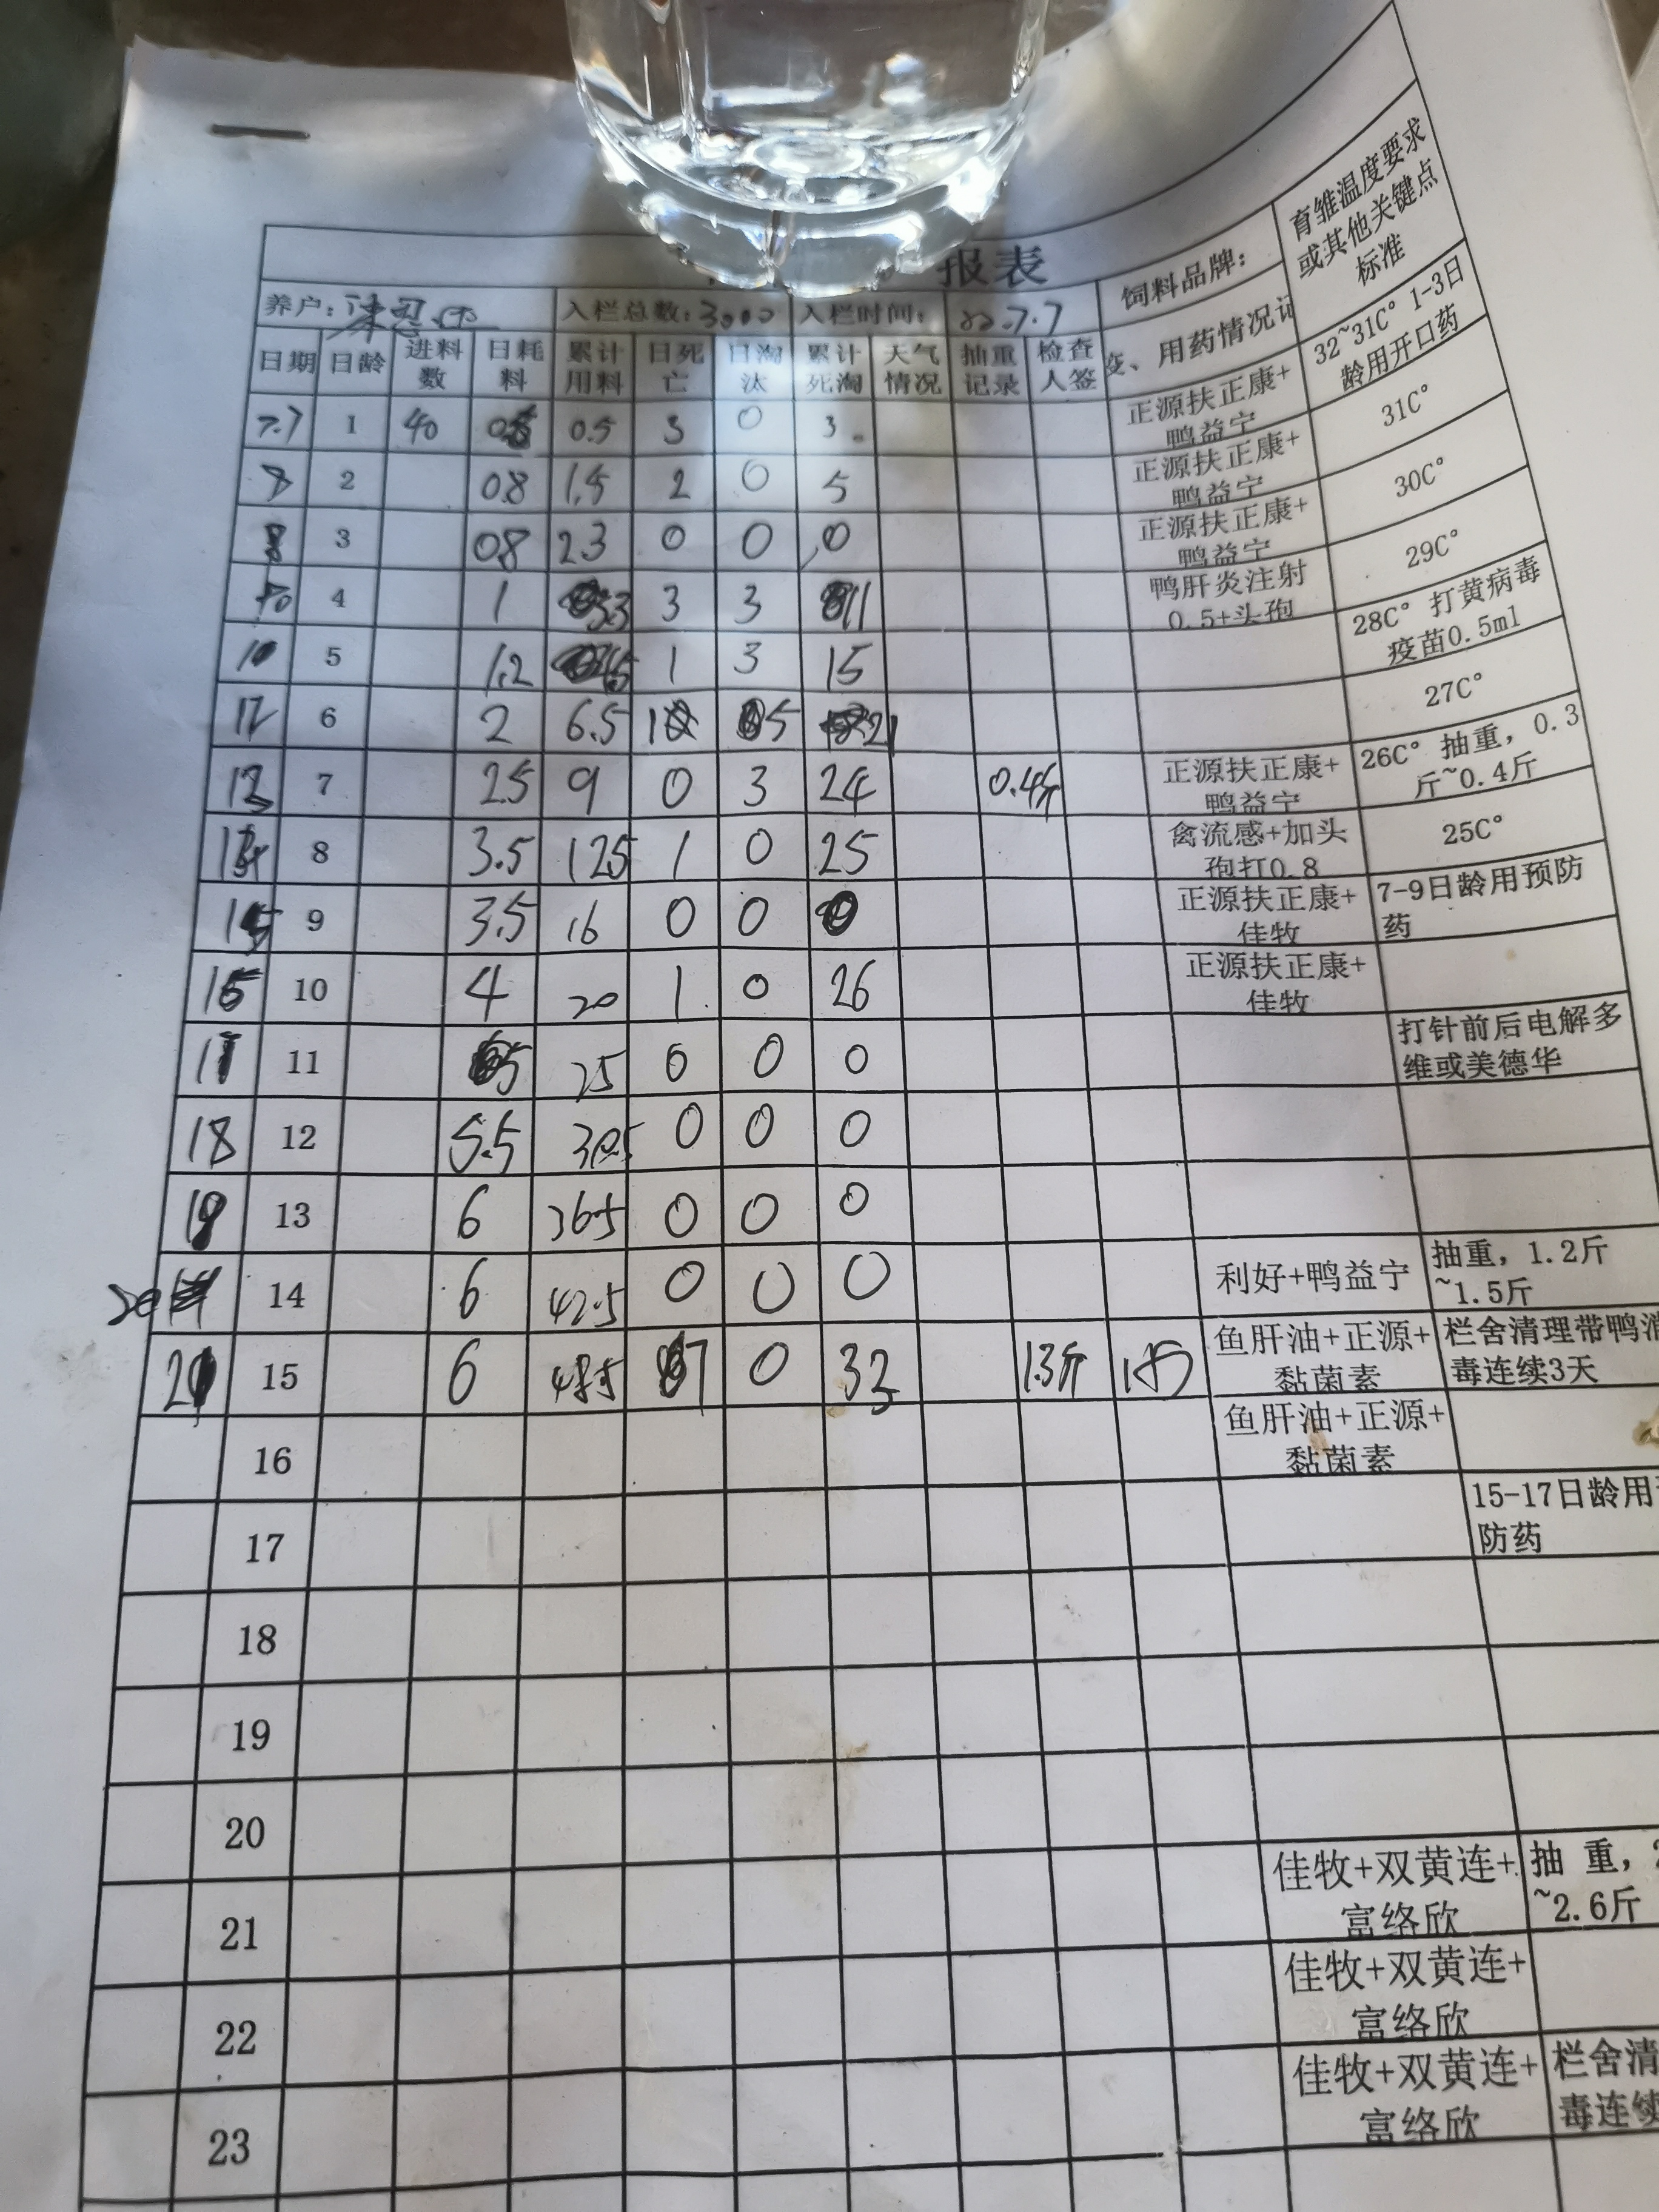 报表
养户: 入栏总数:3000 入栏时间: 22.7.7 饲料品牌:
育雏温度要求或其他关键点标准
日期 日龄 进料数 日耗料 累计用料 日死亡 日淘汰 累计死淘 天气情况 抽重记录 检查人签 、用药情况记
7.7 1 40 0.5 3 0 3 正源扶正康+鸭益宁 32~31C° 1-3日龄用开口药
8 2 08 1.5 2 0 5 正源扶正康+鸭益宁 31C°
3 08 23 0 0 0 正源扶正康+鸭益宁 30C°
4 1 3.3 3 3 11 鸭肝炎注射0.5+头孢 29C°
5 1.2 1 3 15 28C° 打黄病毒疫苗0.5ml
12 6 2 6.5 1 5 21 27C°
13 7 25 9 0 3 24 0.4斤 正源扶正康+鸭益宁 26C° 抽重, 0.3斤~0.4斤
14 8 3.5 125 1 0 25 禽流感+加头孢打0.8 25C°
15 9 3.5 16 0 0 0 正源扶正康+佳牧 7-9日龄用预防药
16 10 4 20 1 0 26 正源扶正康+佳牧
11 5 25 0 0 0 打针前后电解多维或美德华
18 12 5.5 30.5 0 0 0
19 13 6 36.5 0 0 0
20 14 6 42.5 0 0 0 利好+鸭益宁 抽重, 1.2斤~1.5斤
21 15 6 48.5 7 0 33 1.3斤 鱼肝油+正源+黏菌素 栏舍清理带鸭消毒连续3天
16 鱼肝油+正源+黏菌素
17 15-17日龄用 防药
18
19
20
21 佳牧+双黄连+富络欣 抽 重, ~2.6斤
22 佳牧+双黄连+富络欣
23 佳牧+双黄连+富络欣 栏舍清 毒连续